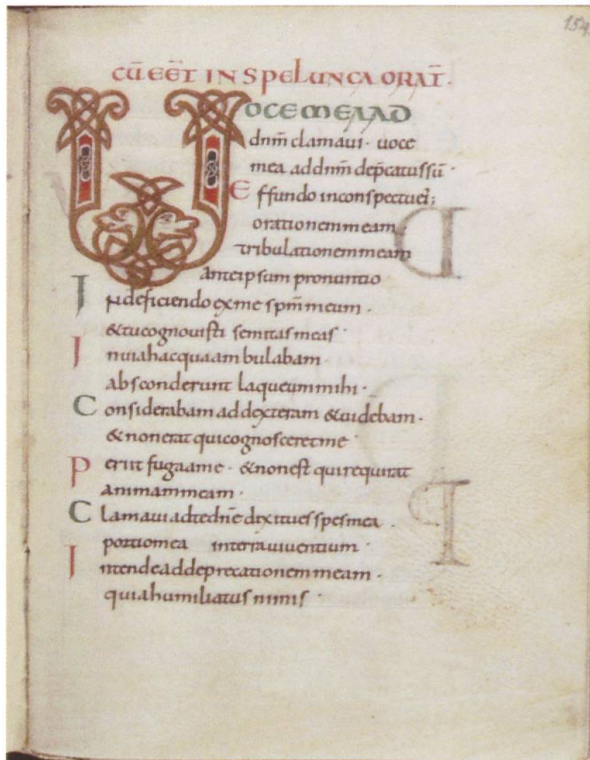 154
CŪ EĒT IN SPELUNCA ORAT̄.
VOCE MEA AD
dnm̄ clamaui · uoce
mea ad dnm̄ dep̄catus sū ·
Effundo in conspectu ei;
orationem meam
tribulationem meam
ante ipsum pronuntio
In deficiendo ex me spm̄ meum ·
& tu cognouisti semitas meas ·
In uia hac qua ambulabam
absconderunt laqueum mihi ·
Considerabam ad dexteram & uidebam ·
& non erat qui cognosceret me ·
Perut fuga a me · & non est qui requirat
animam meam ·
Clamaui ad te dn̄e dixi tu es spes mea
portio mea in terra uiuentium ·
Intende ad deprecationem meam ·
quia humiliatus nimis ·